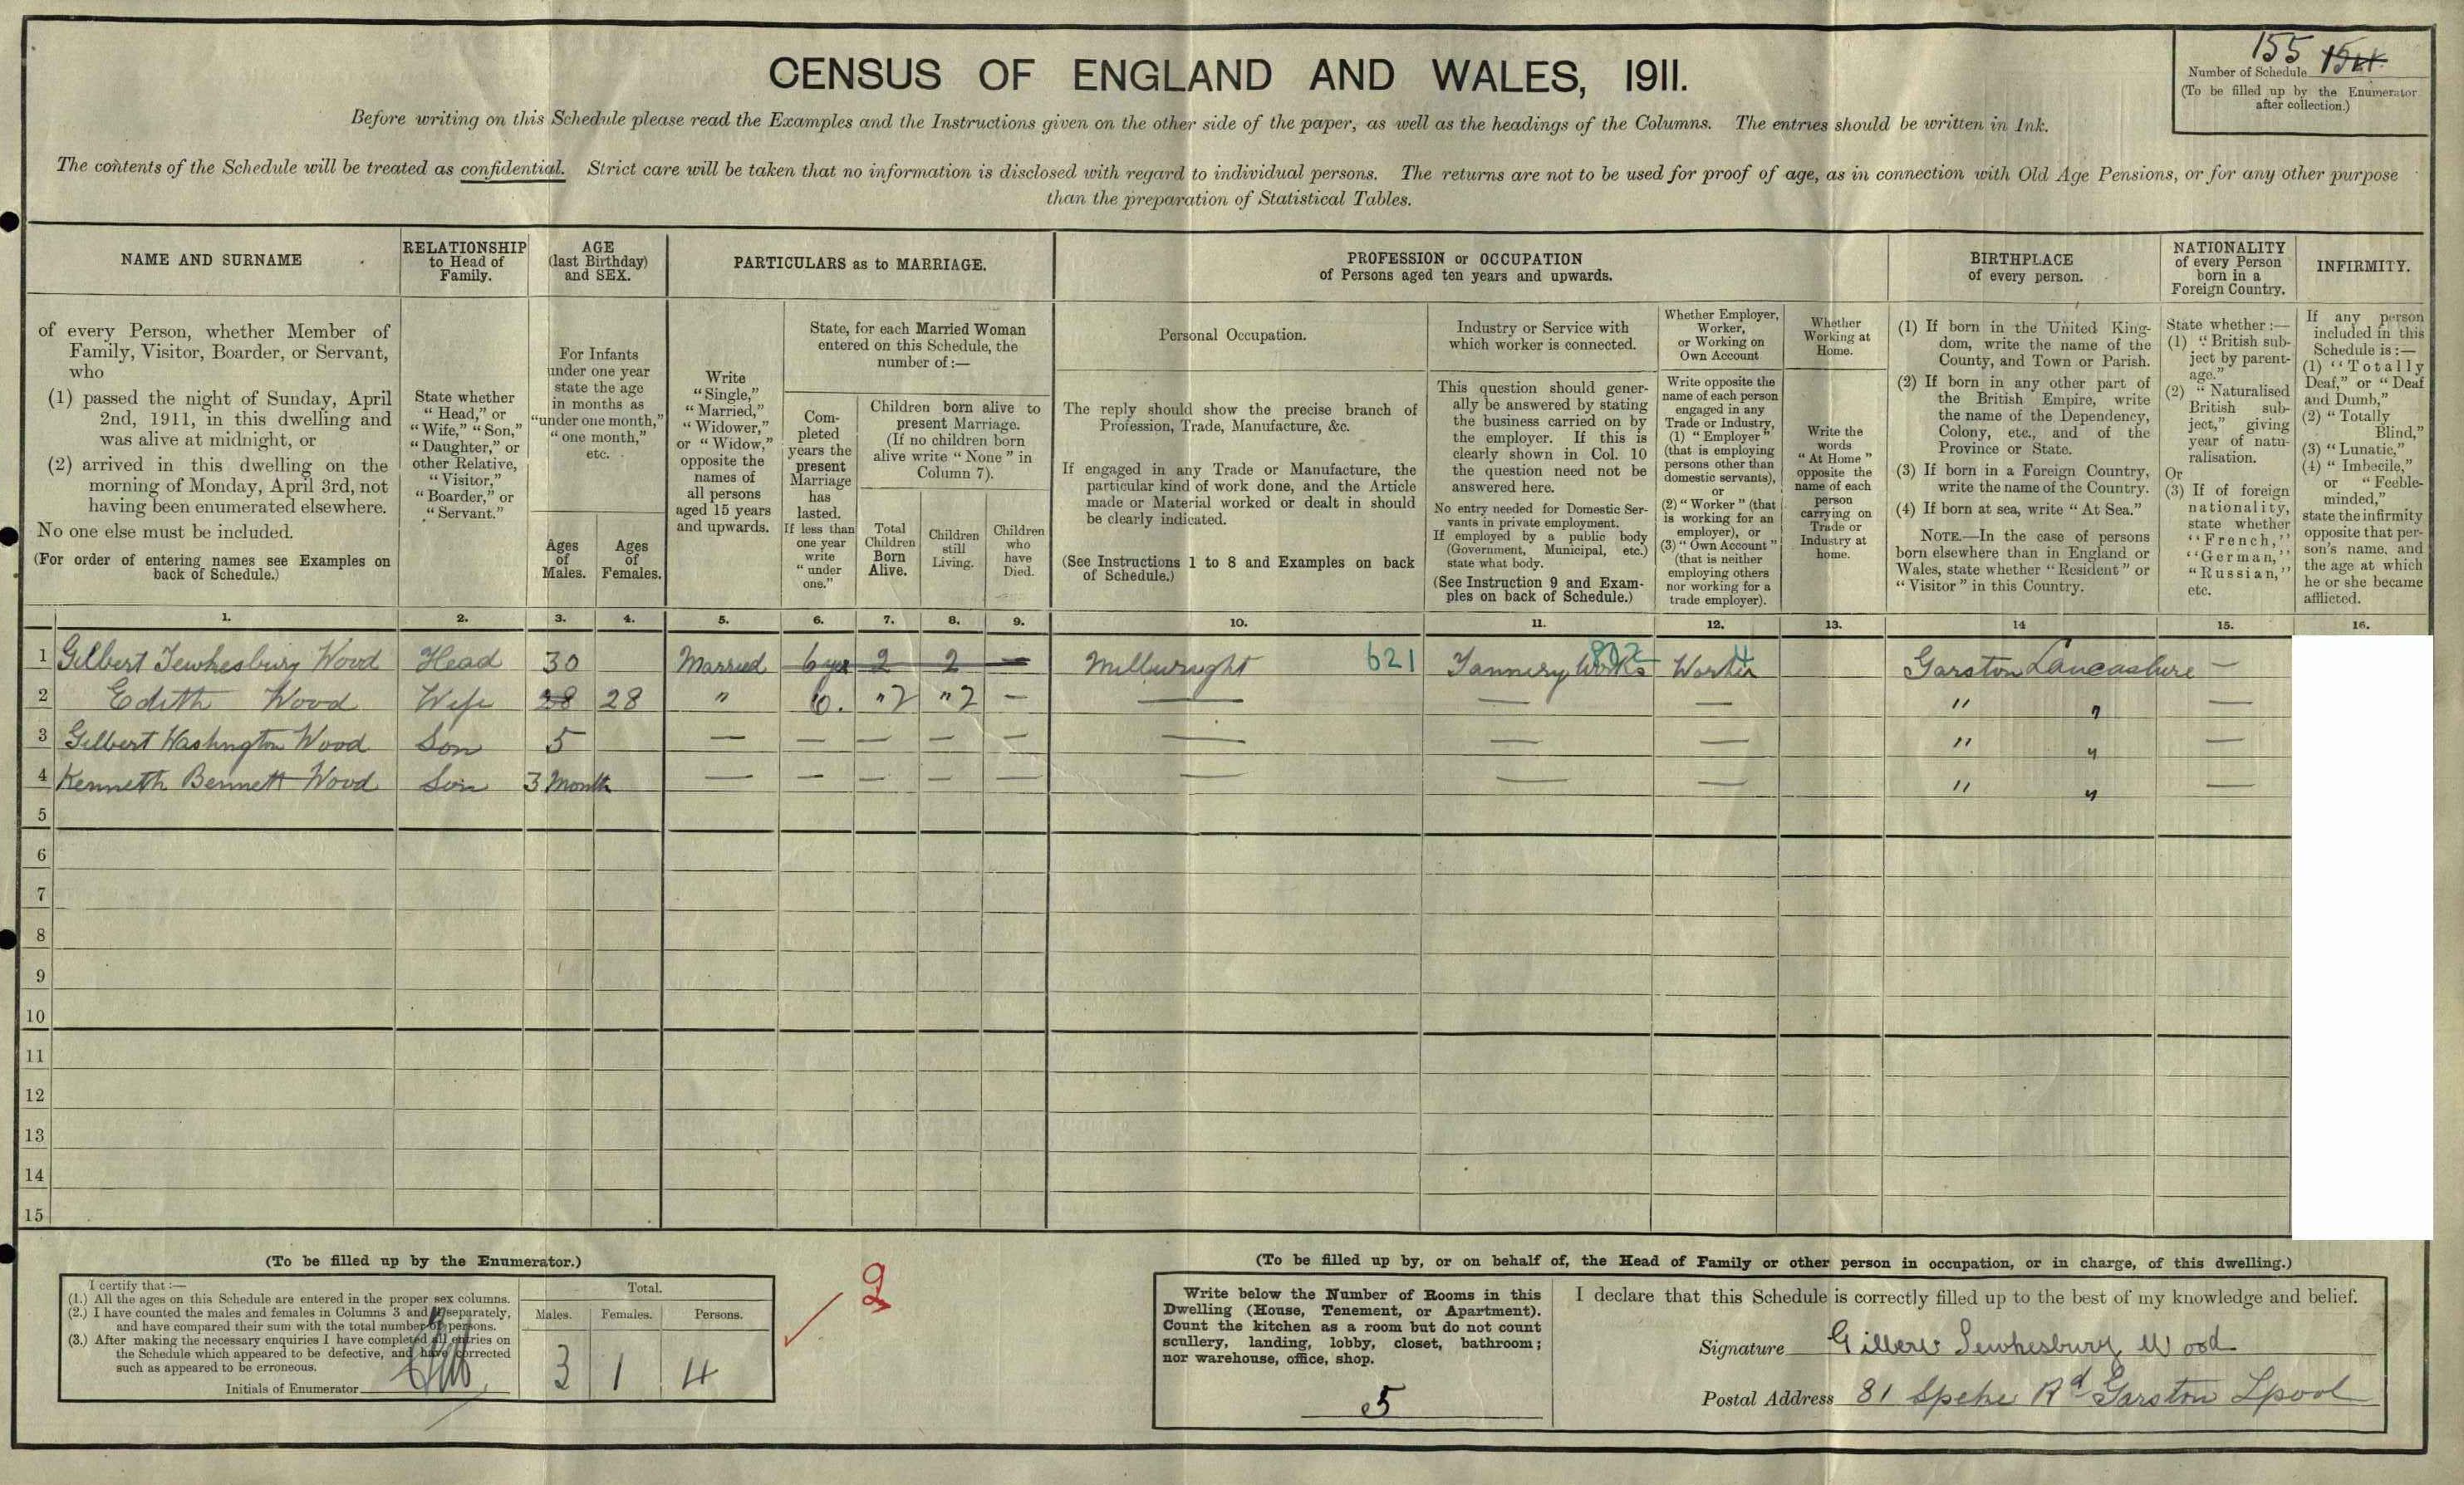 CENSUS OF ENGLAND AND WALES, 1911.
155 154
Number of Schedule
(To be filled up by the Enumerator after collection.)
Before writing on this Schedule please read the Examples and the Instructions given on the other side of the paper, as well as the headings of the Columns. The entries should be written in Ink.
The contents of the Schedule will be treated as confidential. Strict care will be taken that no information is disclosed with regard to individual persons. The returns are not to be used for proof of age, as in connection with Old Age Pensions, or for any other purpose
than the preparation of Statistical Tables.
NAME AND SURNAME
of every Person, whether Member of
Family, Visitor, Boarder, or Servant,
who
(1) passed the night of Sunday, April
2nd, 1911, in this dwelling and
was alive at midnight, or
(2) arrived in this dwelling on the
morning of Monday, April 3rd, not
having been enumerated elsewhere.
No one else must be included.
(For order of entering names see Examples on
back of Schedule.)
RELATIONSHIP
to Head of
Family.
State whether
"Head," or
"Wife," "Son,"
"Daughter," or
other Relative,
"Visitor,"
"Boarder," or
"Servant."
AGE
(last Birthday)
and SEX.
For Infants
under one year
state the age
in months as
"under one month,"
"one month,"
etc.
Ages
of
Males.
Ages
of
Females.
PARTICULARS as to MARRIAGE.
Write
"Single,"
"Married,"
"Widower,"
or "Widow,"
opposite the
names of
all persons
aged 15 years
and upwards.
State, for each Married Woman
entered on this Schedule, the
number of:—
Com-
pleted
years the
present
Marriage
has
lasted.
If less than
one year
write
"under
one."
Children born alive to
present Marriage.
(If no children born
alive write "None" in
Column 7).
Total
Children
Born
Alive.
Children
still
Living.
Children
who
have
Died.
PROFESSION or OCCUPATION
of Persons aged ten years and upwards.
Personal Occupation.
The reply should show the precise branch of
Profession, Trade, Manufacture, &c.
If engaged in any Trade or Manufacture, the
particular kind of work done, and the Article
made or Material worked or dealt in should
be clearly indicated.
(See Instructions 1 to 8 and Examples on back
of Schedule.)
Industry or Service with
which worker is connected.
This question should gener-
ally be answered by stating
the business carried on by
the employer. If this is
clearly shown in Col. 10
the question need not be
answered here.
No entry needed for Domestic Ser-
vants in private employment.
If employed by a public body
(Government, Municipal, etc.)
state what body.
(See Instruction 9 and Exam-
ples on back of Schedule.)
Whether Employer,
Worker,
or Working on
Own Account
Write opposite the
name of each person
engaged in any
Trade or Industry,
(1) "Employer"
(that is employing
persons other than
domestic servants),
or
(2) "Worker" (that
is working for an
employer), or
(3) "Own Account"
(that is neither
employing others
nor working for a
trade employer).
Whether
Working at
Home.
Write the
words
"At Home"
opposite the
name of each
person
carrying on
Trade or
Industry at
home.
BIRTHPLACE
of every person.
(1) If born in the United King-
dom, write the name of the
County, and Town or Parish.
(2) If born in any other part of
the British Empire, write
the name of the Dependency,
Colony, etc., and of the
Province or State.
(3) If born in a Foreign Country,
write the name of the Country.
(4) If born at sea, write "At Sea."
NOTE.—In the case of persons
born elsewhere than in England or
Wales, state whether "Resident" or
"Visitor" in this Country.
NATIONALITY
of every Person
born in a
Foreign Country.
State whether:—
(1) "British sub-
ject by parent-
age."
(2) "Naturalised
British sub-
ject," giving
year of natu-
ralisation.
Or
(3) If of foreign
nationality,
state whether
"French,"
"German,"
"Russian,"
etc.
INFIRMITY.
If any person
included in this
Schedule is:—
(1) "Totally
Deaf," or "Deaf
and Dumb,"
(2) "Totally
Blind,"
(3) "Lunatic,"
(4) "Imbecile,"
or "Feeble-
minded,"
state the infirmity
opposite that per-
son's name, and
the age at which
he or she became
afflicted.
1. 2. 3. 4. 5. 6. 7. 8. 9. 10. 11. 12. 13. 14 15. 16.
1 Gilbert Tewkesbury Wood Head 30 Married 6 yrs 2 2 — Millwright 621 Tannery Works Worker Garston Lancashire —
2 Edith Wood Wife 28 28 " 6. "2 "2 — — — — " " —
3 Gilbert Washington Wood Son 5 — — — — — — — — " " —
4 Kenneth Bennett Wood Son 3 Month — — — — — — — — " " —
5
6
7
8
9
10
11
12
13
14
15
(To be filled up by the Enumerator.)
I certify that:—
(1.) All the ages on this Schedule are entered in the proper sex columns.
(2.) I have counted the males and females in Columns 3 and 4 separately,
and have compared their sum with the total number of persons.
(3.) After making the necessary enquiries I have completed all entries on
the Schedule which appeared to be defective, and have corrected
such as appeared to be erroneous.
Initials of Enumerator
Total.
Males. Females. Persons.
3 1 4
2
(To be filled up by, or on behalf of, the Head of Family or other person in occupation, or in charge, of this dwelling.)
Write below the Number of Rooms in this
Dwelling (House, Tenement, or Apartment).
Count the kitchen as a room but do not count
scullery, landing, lobby, closet, bathroom;
nor warehouse, office, shop.
5
I declare that this Schedule is correctly filled up to the best of my knowledge and belief.
Signature Gilbert Tewkesbury Wood
Postal Address 81 Speke Rd Garston Lpool